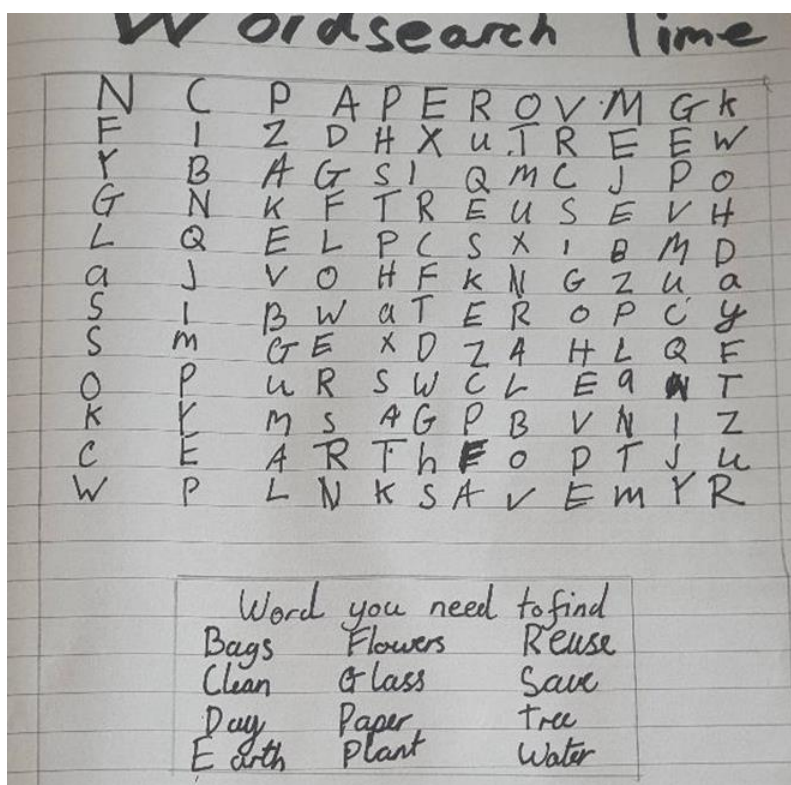 Wordsearch Time
N C P A P E R O V M G K
F I Z D H X U T R E E W
Y B A G S I Q M C J P O
G N K F T R E U S E V H
L Q E L P C S X I B M D
a J V O H F K N G Z U a
S I B W a T E R O P C y
S m G E X D Z A H L Q F
O P U R S W C L E a N T
K Y M S A G P B V N I Z
C E A R T h E O P T J U
W P L N K S A V E m Y R
Word you need to find
Bags Flowers Reuse
Clean Glass Save
Day Paper Tree
Earth Plant Water